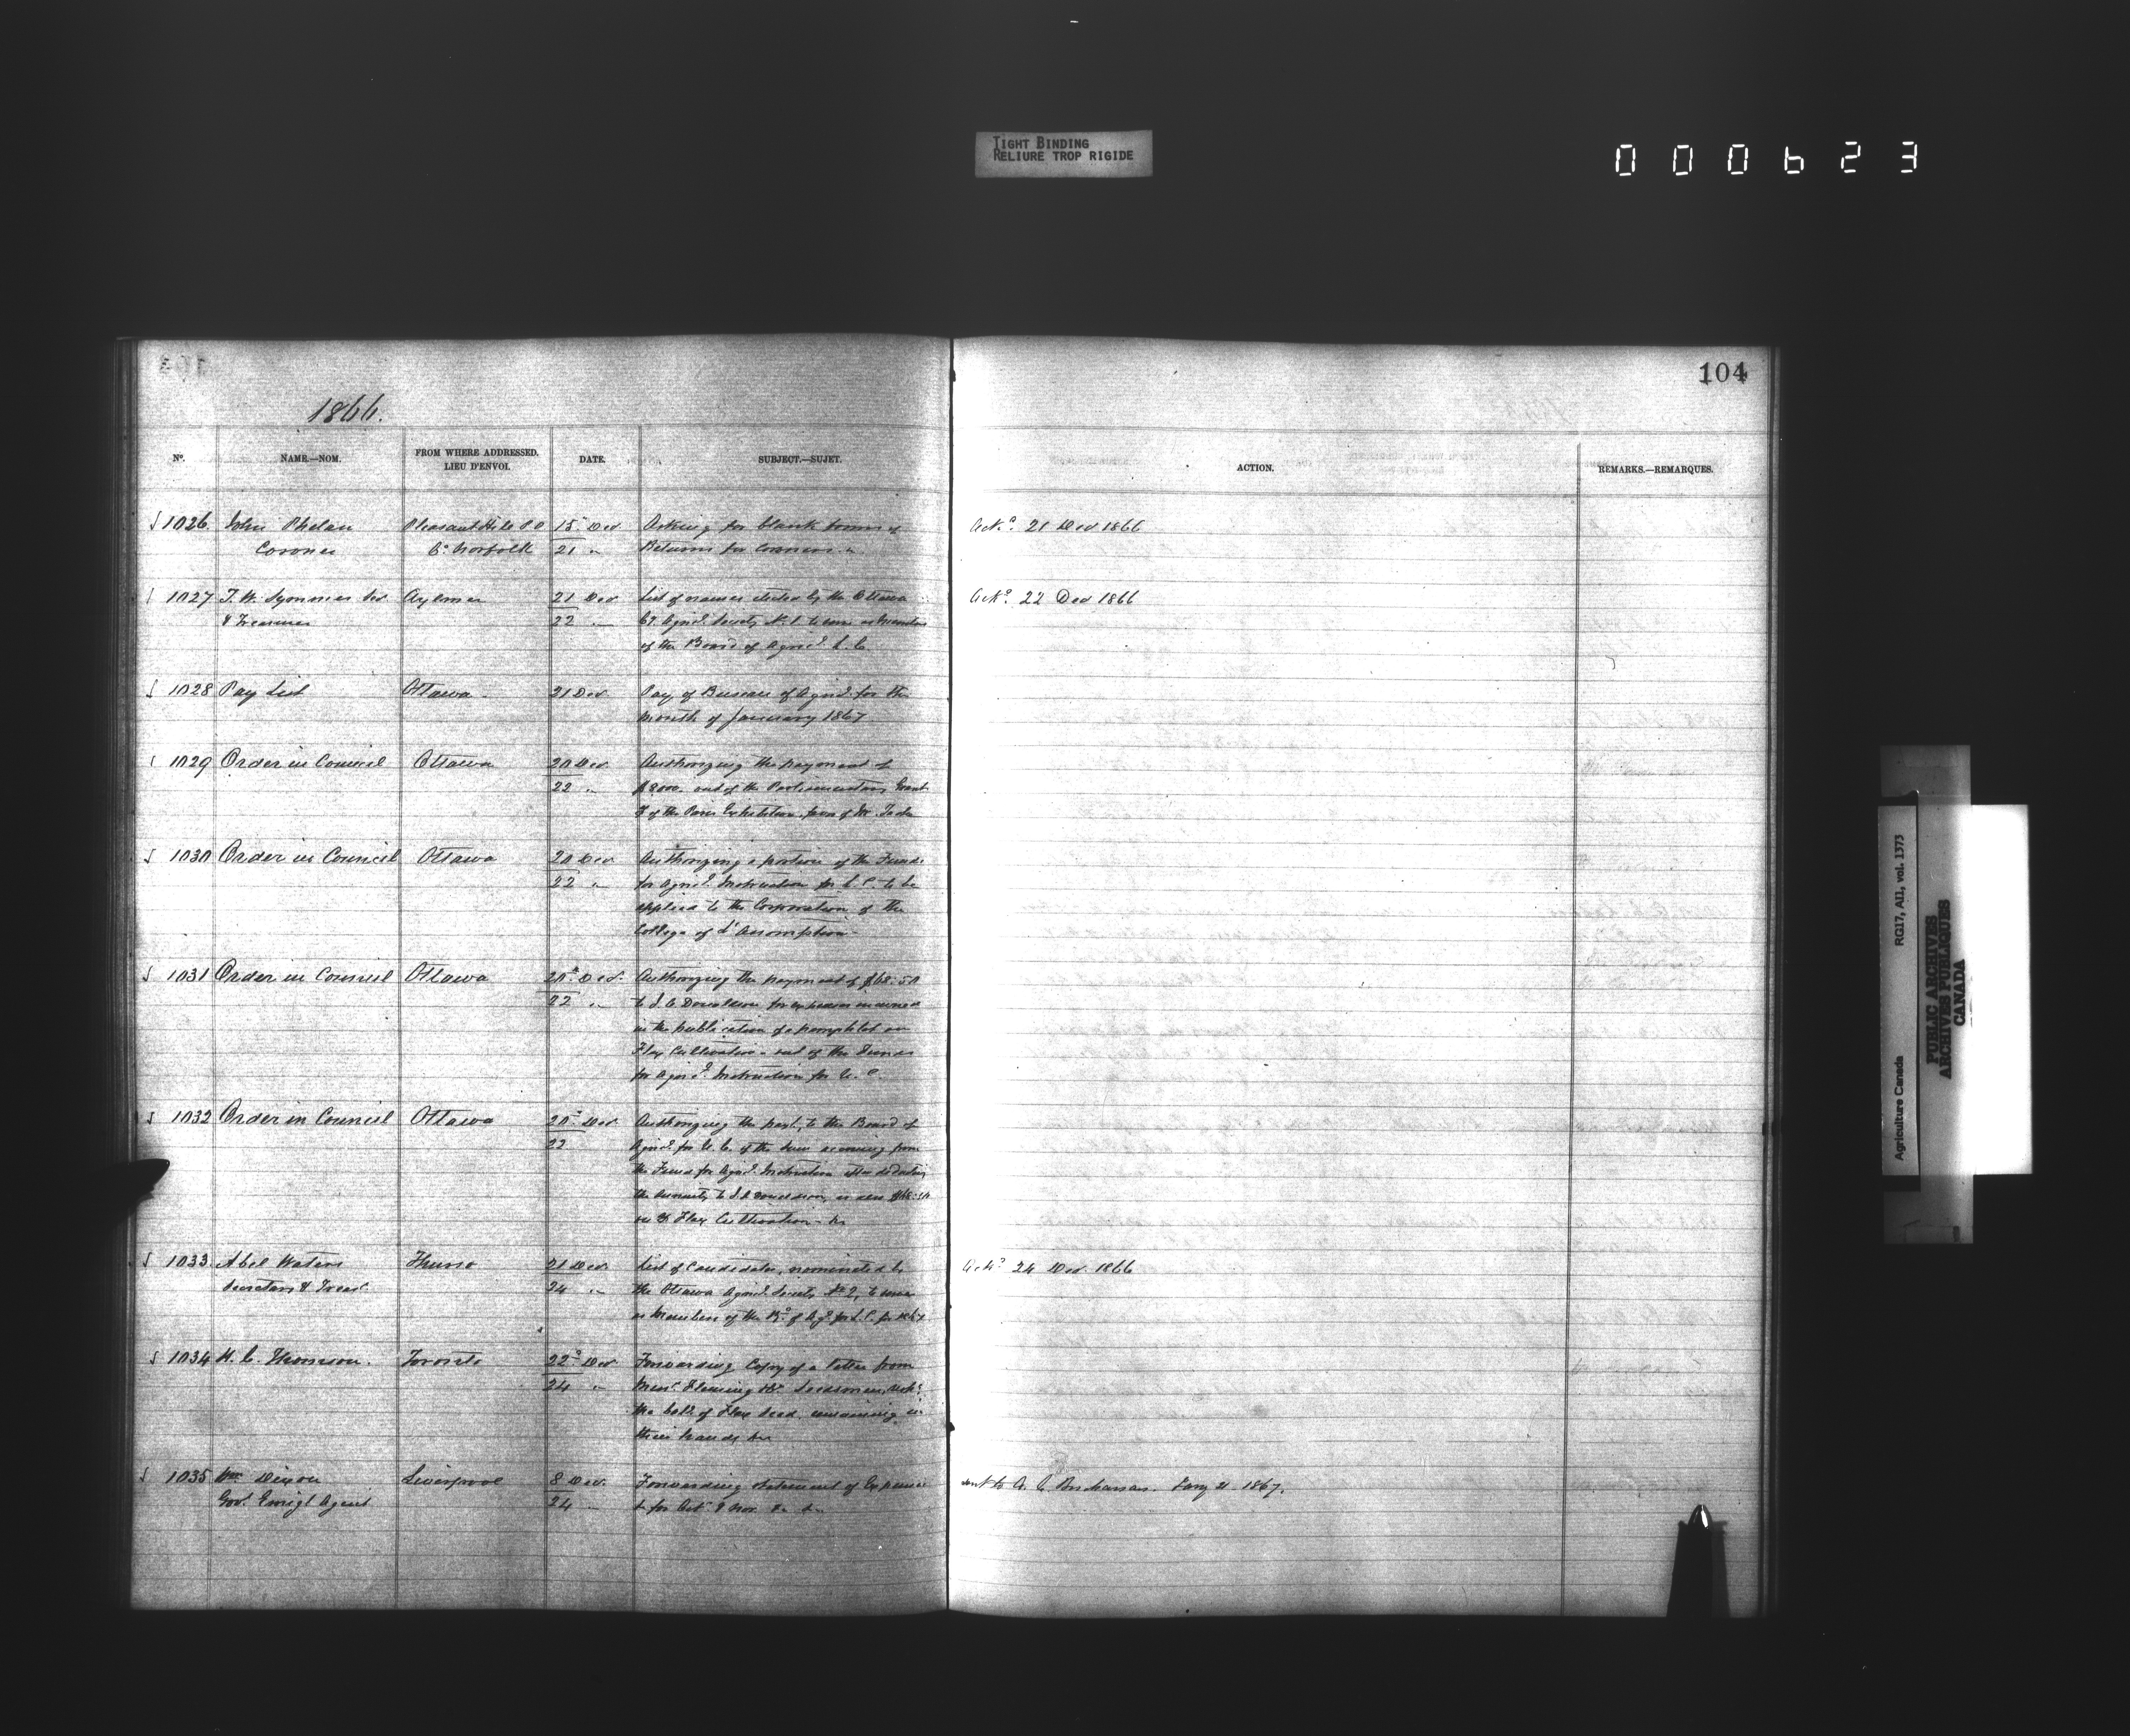 TIGHT BINDING
RELIURE TROP RIGIDE
000623
104
1866.
No. NAME.—NOM. FROM WHERE ADDRESSED. LIEU D'ENVOI. DATE. SUBJECT.—SUJET. ACTION. REMARKS.—REMARQUES.
1026 John Phelan Pleasant Hill P.O 15 Dec Asking for blank forms of Ackd. 21 Dec 1866
Coroner Co. Norfolk 21 " Returns for Coroners
1027 T. W. Symmes Sec Aylmer 21 Dec List of names elected by the Ottawa Ackd. 22 Dec 1866
& Treasurer 22 " Co. Agricl. Society No. 1 to serve as Members
of the Board of Agricl. L. C.
1028 Pay List Ottawa 21 Dec Pay of Bureau of Agricl. for the
month of January 1867
1029 Order in Council Ottawa 20 Dec Authorizing the payment of
22 " $8000. out of the Parliamentary Grant
of the Paris Exhibition favor of Mr.
1030 Order in Council Ottawa 20 Dec Authorizing a portion of the Funds
22 " for Agricl. Instruction for L. C. to be
applied to the Corporation of the
College of L'Assomption
1031 Order in Council Ottawa 20th Dec. Authorizing the payment of $68.50
22 " to J. A Donaldson for expenses incurred
in the publication of a pamphlet on
Flax Cultivation - out of the Funds
for Agricl. Instruction for U. C
1032 Order in Council Ottawa 20th Dec. Authorizing the payt. to the Board of
22 Agricl. for U. C. of the sum accruing from
the Funds for Agricl. Instruction after deducting
the to J. A Donaldson,
Flax Cultivation - &c
1033 Abel Waters Thurso 21 Dec. List of Candidates, nominated by Ackd. 24 Dec. 1866
Secretary & Treasr. 24 " the Ottawa Agricl. Society No 2, to serve
as Members of the Bd. of Ag. for L. C. for 1867
1034 H. C. Thomson. Toronto 22d Dec Forwarding Copy of a letter from
24 " Messrs. Fleming & Co. Seedsmen,
the of Flax Seed remaining in
their hands &c
1035 Wm Dixon Liverpool 8 Dec. Forwarding statement of Expenses sent to A. C. Buchanan. Jany 21 1867.
Govt. Emigt. Agent 24 " & for Octr. & Nov. &c &c
Agriculture Canada RG17, AII, vol. 1373
PUBLIC ARCHIVES
ARCHIVES PUBLIQUES
CANADA